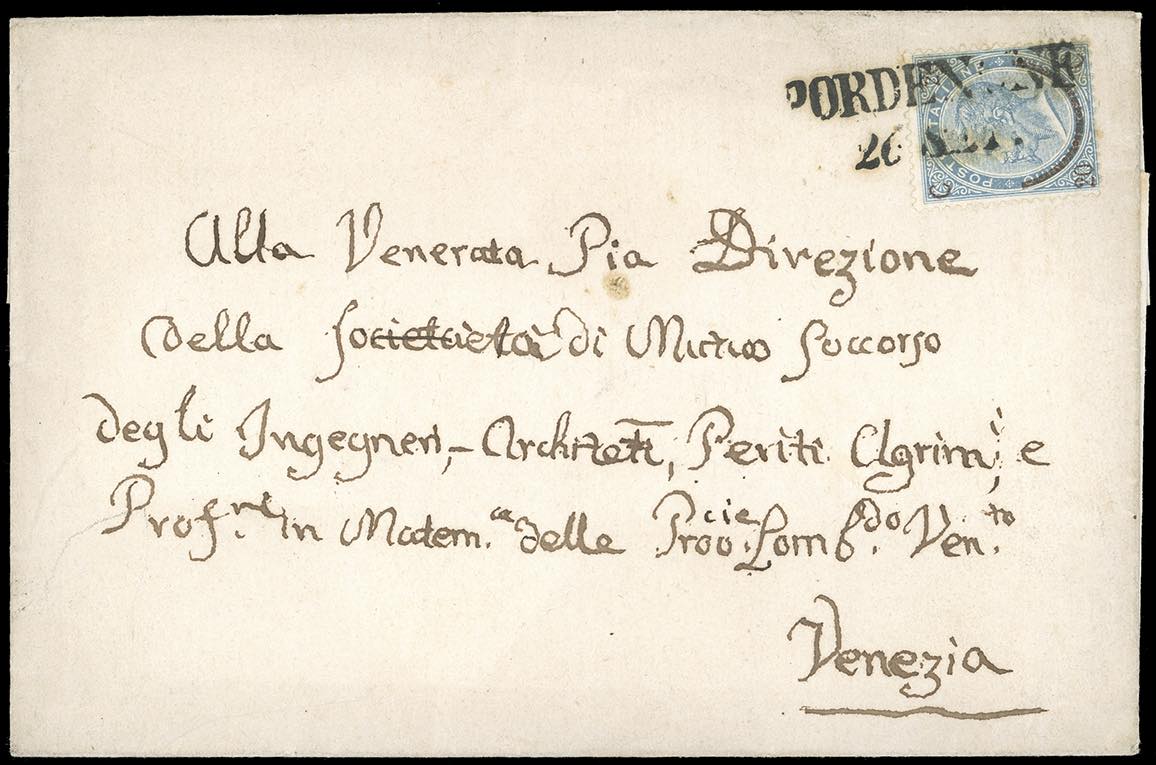 PORDENONE
26 SET.
POSTE ITALIANE
C 20
Alla Venerata Pia Direzione
della Societcietà di Mutuo Soccorso
degli Ingegneri,- Architetti, Periti Agrim,ⁱ e
Prof.ʳⁱ in Matem.ᶜᵃ delle Prov.ᶜⁱᵉ Lomb.ᵈᵒ Ven.ᵗᵒ
Venezia